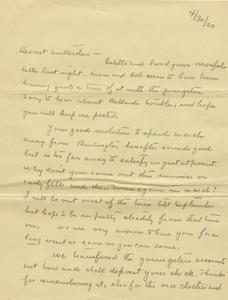 4/30/20
Dearest Mutterchen -
and I read your
letter last night. Mom and Bob seem to have been
having quite a time of it with the youngsters
Sorry to hear about trouble, and hope
you will keep me posted.
Your good resolution to spend
away from Bennington hereafter sounds good
but is too far away to satisfy us just at present.
Why don't you come out this summer or
early fall and then come again in March?
I will be out most of the time till September
but hope to be in pretty steadily from that time
on. We are very anxious to have you for a
long visit as soon as you can come.
We transferred the youngsters accounts
out here and still deposit your check. Thanks
for remembering it, also for the nice clothes and